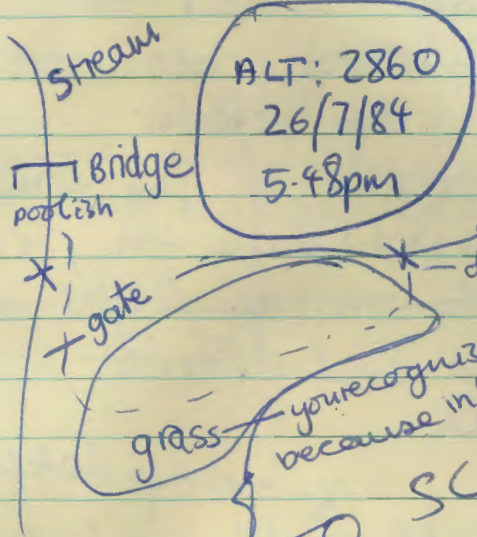 stream
ALT: 2860
26/7/84
5.48pm
Bridge
poolish
gate
grass
because in
SC